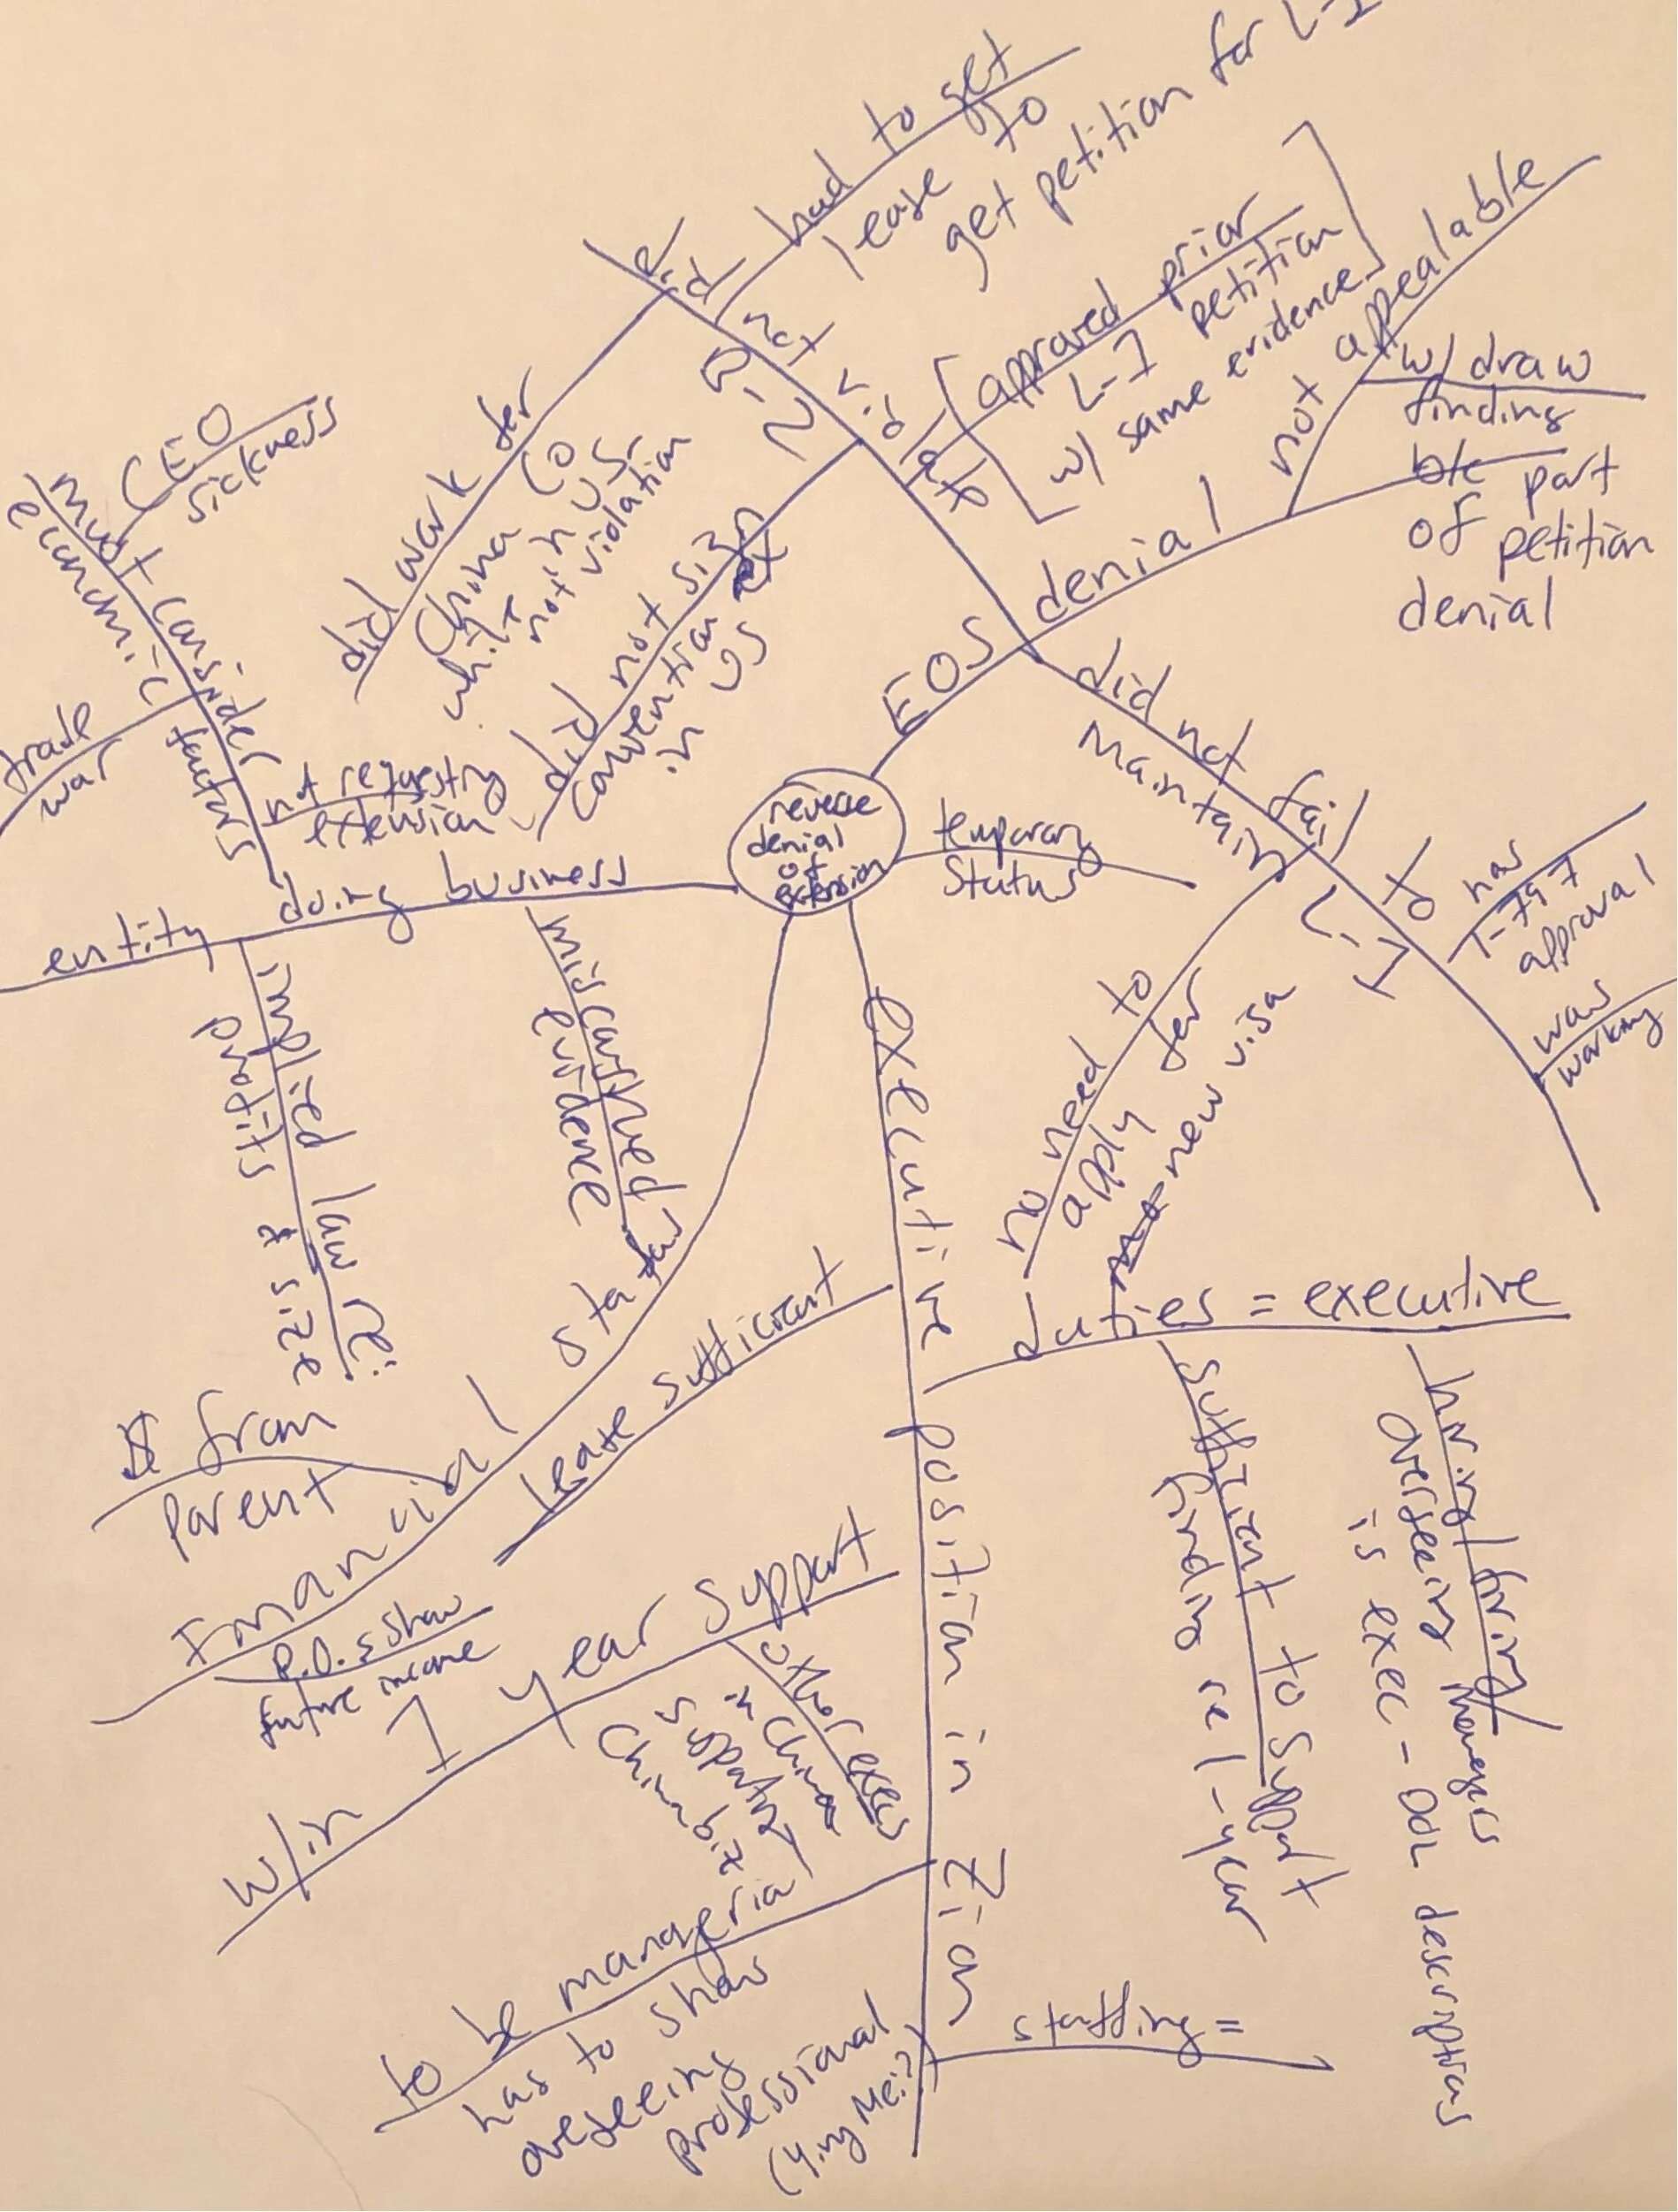 reverse
denial
of
extension
EOS denial
not appealable
w/draw
finding
b/c part
of petition
denial
did not violate
B-2
had to get
lease to
get petition for L-1
[approved prior
L-1 petition
w/ same evidence]
did work for
China co
while in US,
not violation
did not sign
convention
in US
did not fail to
Maintain L-1
has
I-797
approval
was
working
no need to
apply for
new visa
temporary
status
executive position in
duties = executive
sufficient to support
finding re 1-year
hiring/firing/
overseeing managers
is exec - ool descriptions
staffing =
lease sufficient
w/in 1 year support
other execs
in China
support
China biz
to be managerial
has to show
overseeing
professional
(Ying Mei?)
financial status
$ from
parent
P.O.s show
future income
doing business
entity
misconstrued
evidence
implied law re:
profits & size
not requesting
extension
must consider
economic factors
CEO
sickness
trade
war